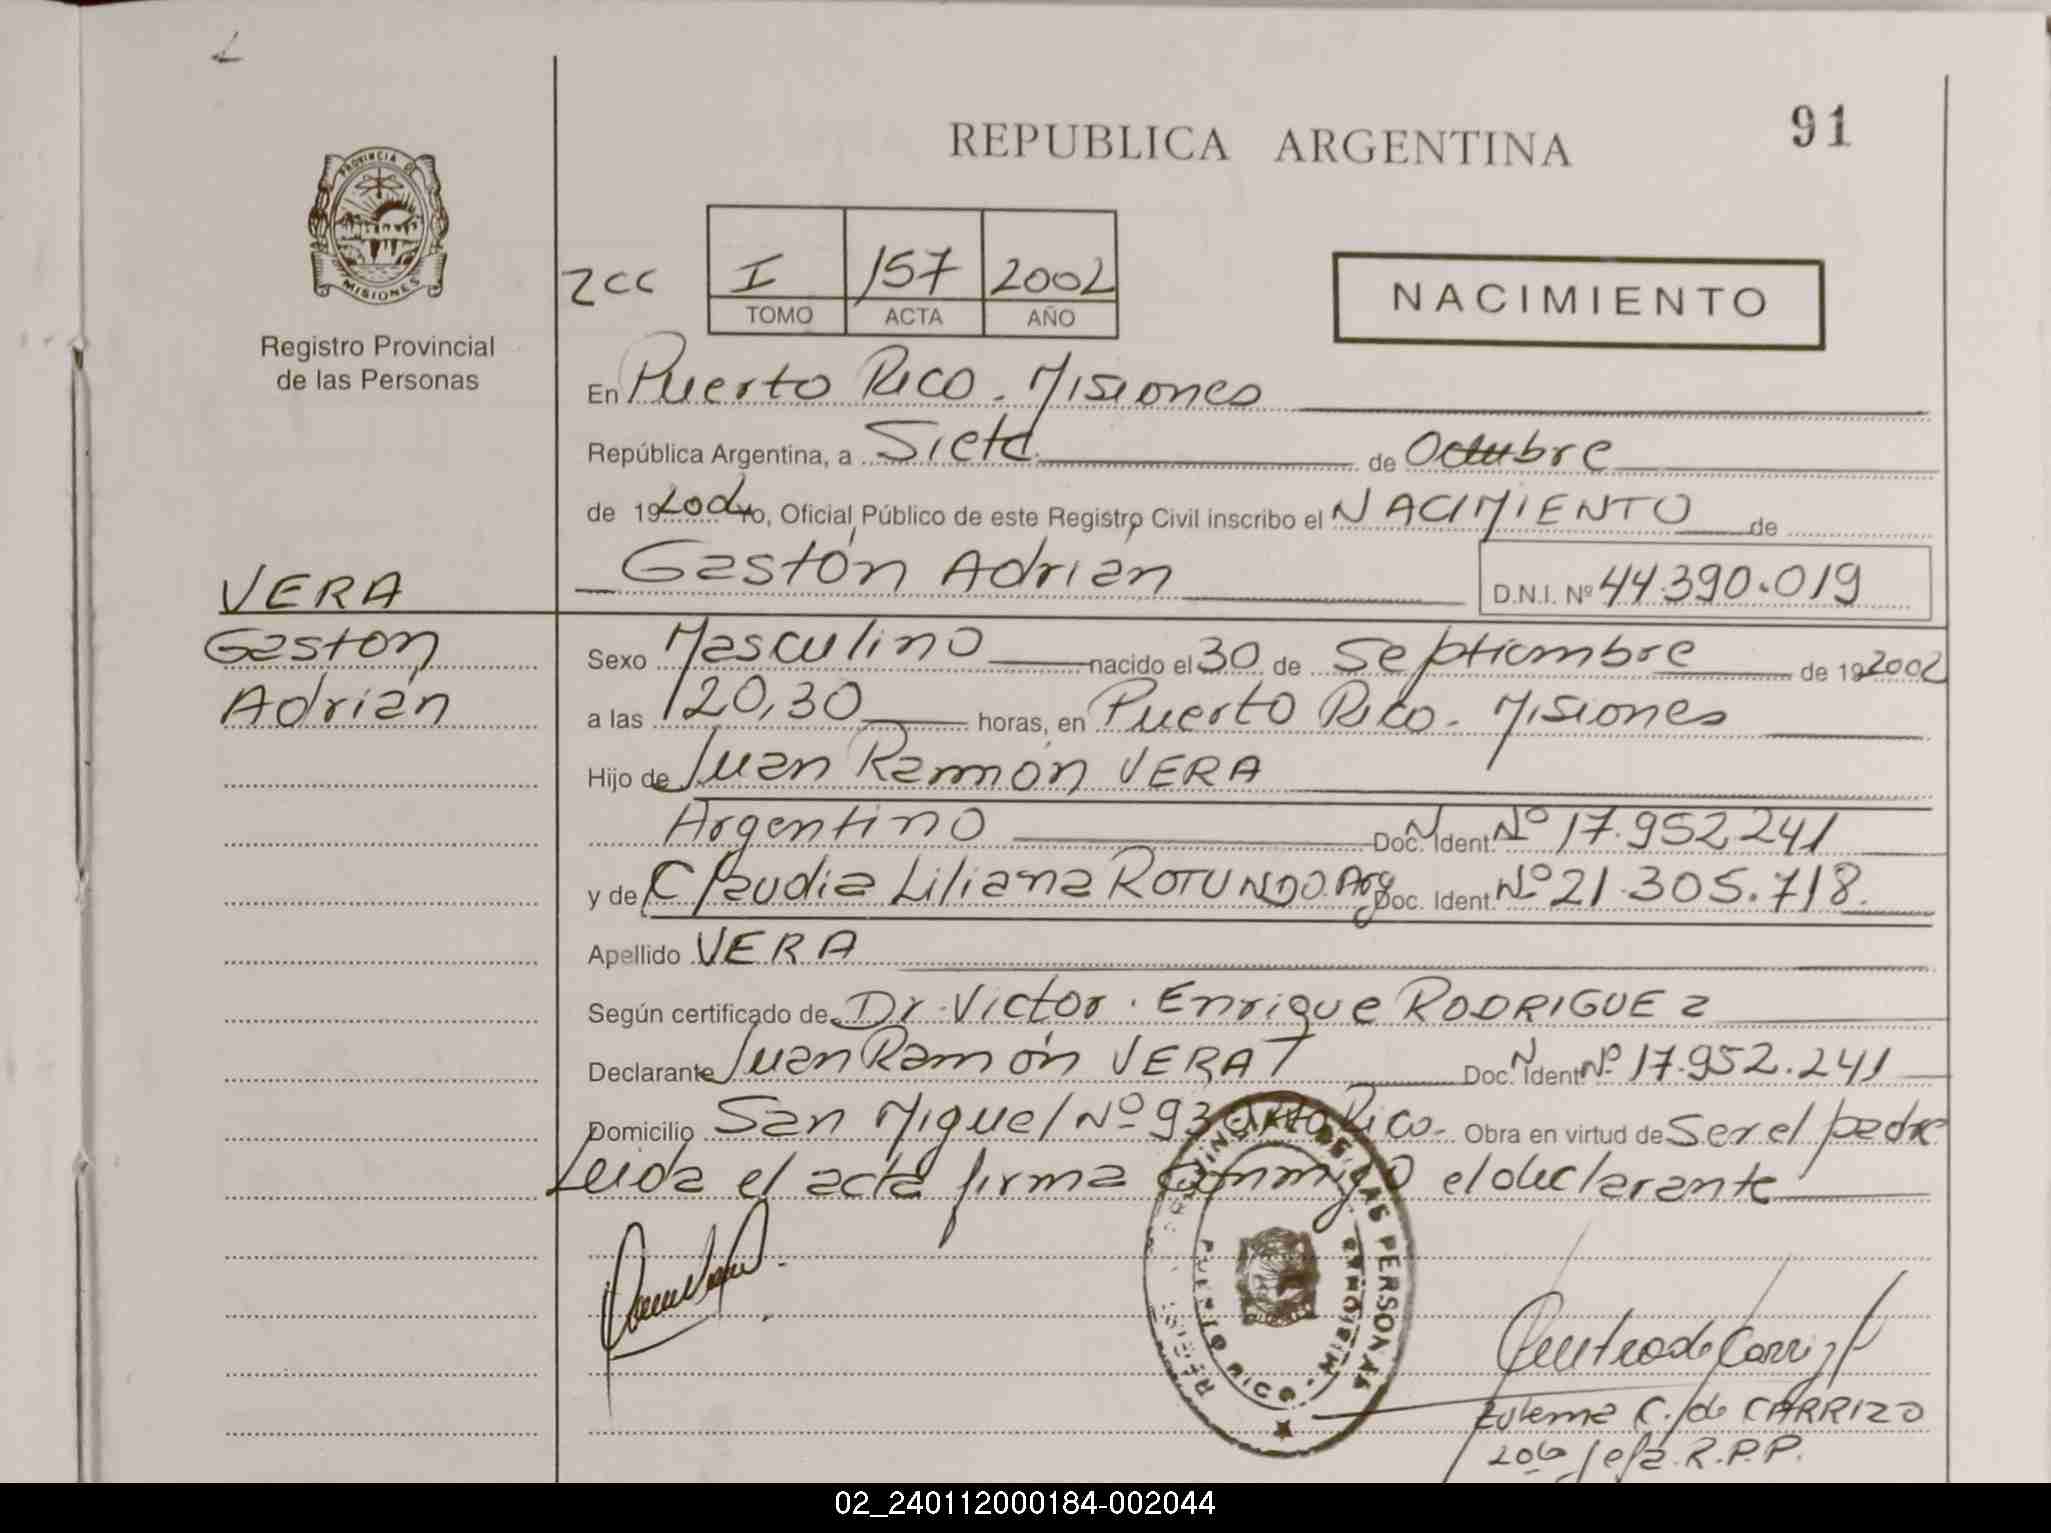 REPUBLICA ARGENTINA
91
PROVINCIA DE
MISIONES
Registro Provincial
de las Personas
2CC
I 157 2002
TOMO ACTA AÑO
NACIMIENTO
En Puerto Rico. Misiones
República Argentina, a Siete de Octubre
de 192002 yo, Oficial Público de este Registro Civil inscribo el NACIMIENTO de
Gastón Adrián
D.N.I. Nº 44.390.019
VERA
Gastón
Adrián
Sexo Masculino nacido el 30 de Septiembre de 192002
a las 20,30 horas, en Puerto Rico. Misiones
Hijo de Juan Ramón VERA
Argentino Doc. N. Ident. Nº 17.952.241
y de Claudia Liliana ROTUNDO. Arg Doc. Ident. Nº 21.305.718.
Apellido VERA
Según certificado de Dr. Victor. Enrique RODRIGUEZ
Declarante Juan Ramón VERA Doc. N. Ident. Nº 17.952.241
Domicilio San Miguel Nº 93 Pto Rico. Obra en virtud de Ser el padre
Leida el acta firma conmigo el declarante
PROVINCIAL DE LAS PERSONAS
PUERTO RICO · MISIONES
C. de CARRIZO
Jefa. R.P.P.
02_240112000184-002044